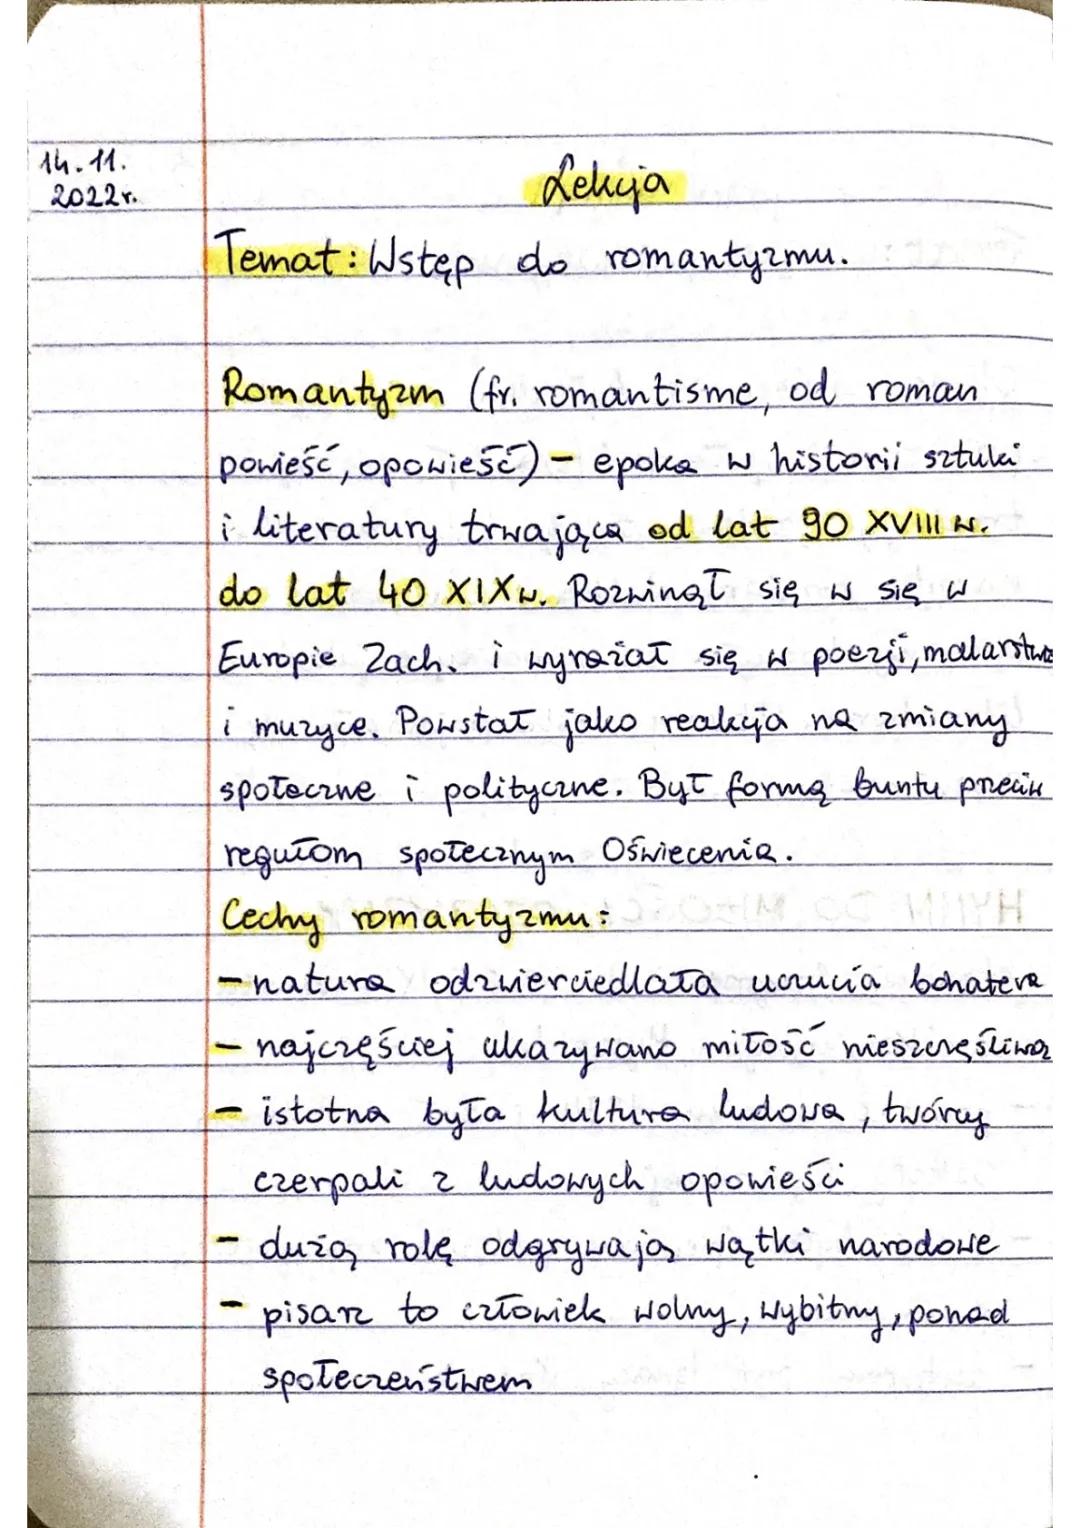 14.11.
2022r.
Lekcja
Temat: Wstęp do romantyzmu.
Romantyzm (fr. romantisme, od roman
powieść, opowieść) - epoka w historii sztuki
i literatury trwająca od lat 90 XVIII w.
do lat 40 XIX w. Rozwinął się w się w
Europie Zach. i wyrażał się w poezji, malarstwie
i muzyce. Powstał jako reakcja na zmiany
społeczne i polityczne. Był formą buntu przeciw
regułom społecznym Oświecenia.
Cechy romantyzmu:
- natura odzwierciedlała uczucia bohatera
- najczęściej ukazywano miłość nieszczęśliwą
- istotna była kultura ludowa, twórcy
czerpali z ludowych opowieści
- dużą rolę odgrywają wątki narodowe
- pisarz to człowiek wolny, wybitny, ponad
społeczeństwem